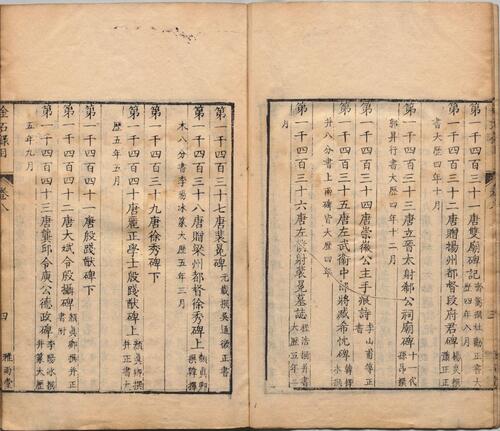 第一千四百三十一唐雙廟碑記
歷四年八月
第一千四百三十二唐贈揚州都督段府君碑 楊炎撰
書大歷四年十月
第一千四百三十三唐立晉太射郗公祠廟碑 十一代
孫昂撰
郭昇行書大歷四年十二月
第一千四百三十四唐崇徽公主手痕詩 李山甫等正
書
第一千四百三十五唐左武衛中郎將臧希忱碑 韓擇
木撰
并八分書上兩碑皆大歷四年
第一千四百三十六唐左僕射裴冕墓誌 程浩撰并書
大歷五年三
月
第一千四百三十七唐裴冕碑 元載撰吳通微正書
第一千四百三十八唐贈梁州都督徐秀碑上 顏真卿
撰韓擇
木八分書李陽冰篆大歷五年三月
第一千四百三十九唐徐秀碑下
第一千四百四十唐麗正學士殷踐猷碑上 顏真卿撰
并正書大
歷五年五月
第一千四百四十一唐殷踐猷碑下
第一千四百四十二唐大斌令殷攝碑 顏真卿撰并正
書附
第一千四百四十三唐龔邱令庾公德政碑 李陽冰撰
并篆大歷
五年九月
金石錄目 卷八 四 雅雨堂